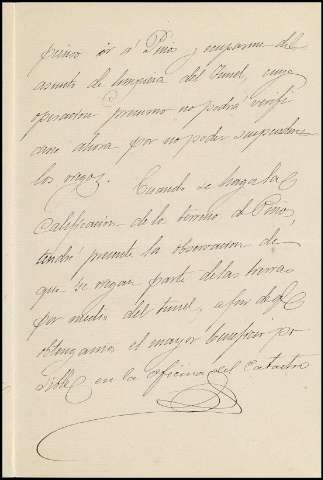 pienso ir á Pinós, y enparme del
asunto de limpieza del Tunel, cuya
operacion presumo no podrá verifi
carse ahora por no poder suspenderse
los riegos. Cuando se haga la
Calificacion de la tierras de Pinos,
tendré presente la observacion de
que se riegan parte de las tierras
por medio del tunel, a fin de q.
obtengamos el mayor beneficio po
sible en la oficina del Catastro